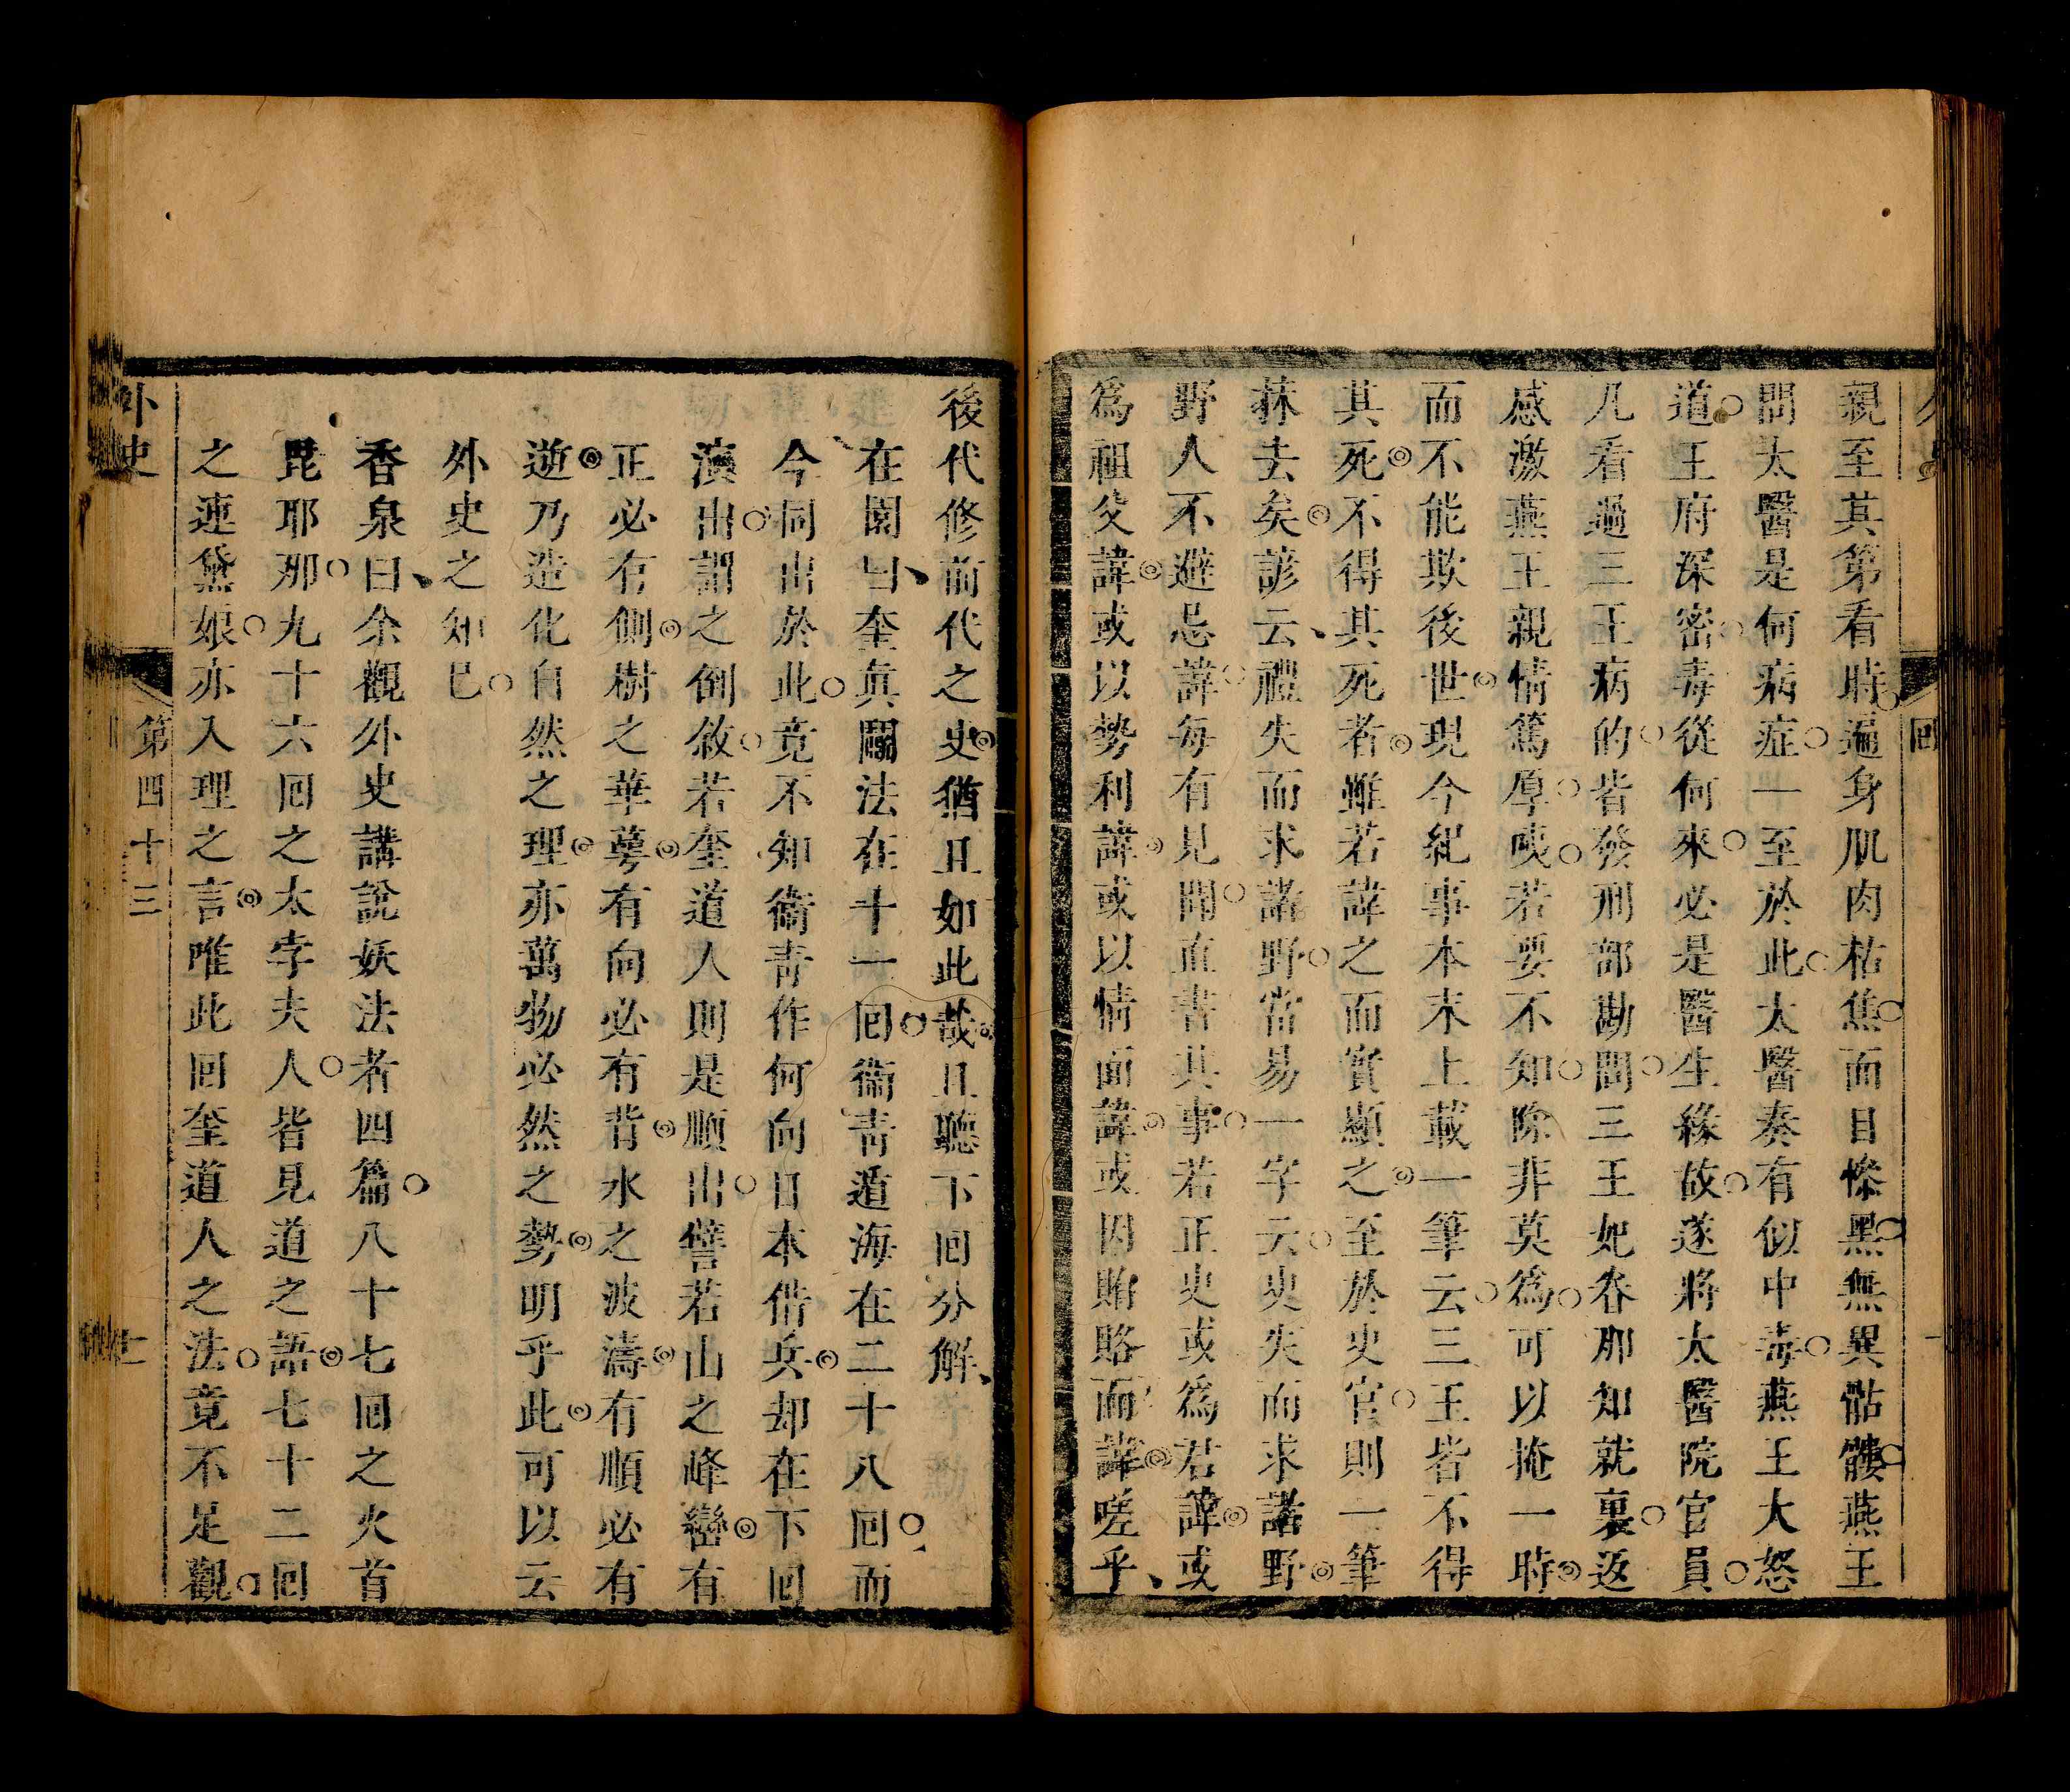 親至其第看時遍身肌肉枯焦面目慘黑無異骷髏燕王
問太醫是何病症一至於此太醫奏有似中毒燕王大怒
道王府深密毒從何來必是醫生緣故遂將太醫院官員
凡看過三王病的皆發刑部勘問三王妃眷那知就裏返
感激燕王親情篤厚噯若要不知除非莫爲可以掩一時
而不能欺後世現今紀事本末上載一筆云三王皆不得
其死不得其死者雖若諱之而實顯之至於史官則一筆
抹去矣諺云禮失而求諸野當易一字云史失而求諸野
野人不避忌諱每有見聞直書其事若正史或爲君諱或
爲祖父諱或以勢利諱或以情面諱或因賄賂而諱嗟乎
後代修前代之史猶且如此哉且聽下回分解
在園曰奎眞鬭法在十一回衞靑遁海在二十八回而
今同出於此竟不知衞靑作何向日本借兵却在下回
演出謂之倒敘若奎道人則是順出譬若山之峰巒有
正必有側樹之華萼有向必有背水之波濤有順必有
逆乃造化自然之理亦萬物必然之勢明乎此可以云
外史之知已
香泉曰余觀外史講說妖法者四篇八十七回之火首
毘耶那九十六回之太孛夫人皆見道之語七十二回
之連黛娘亦入理之言唯此回奎道人之法竟不足觀
外史
第四十三